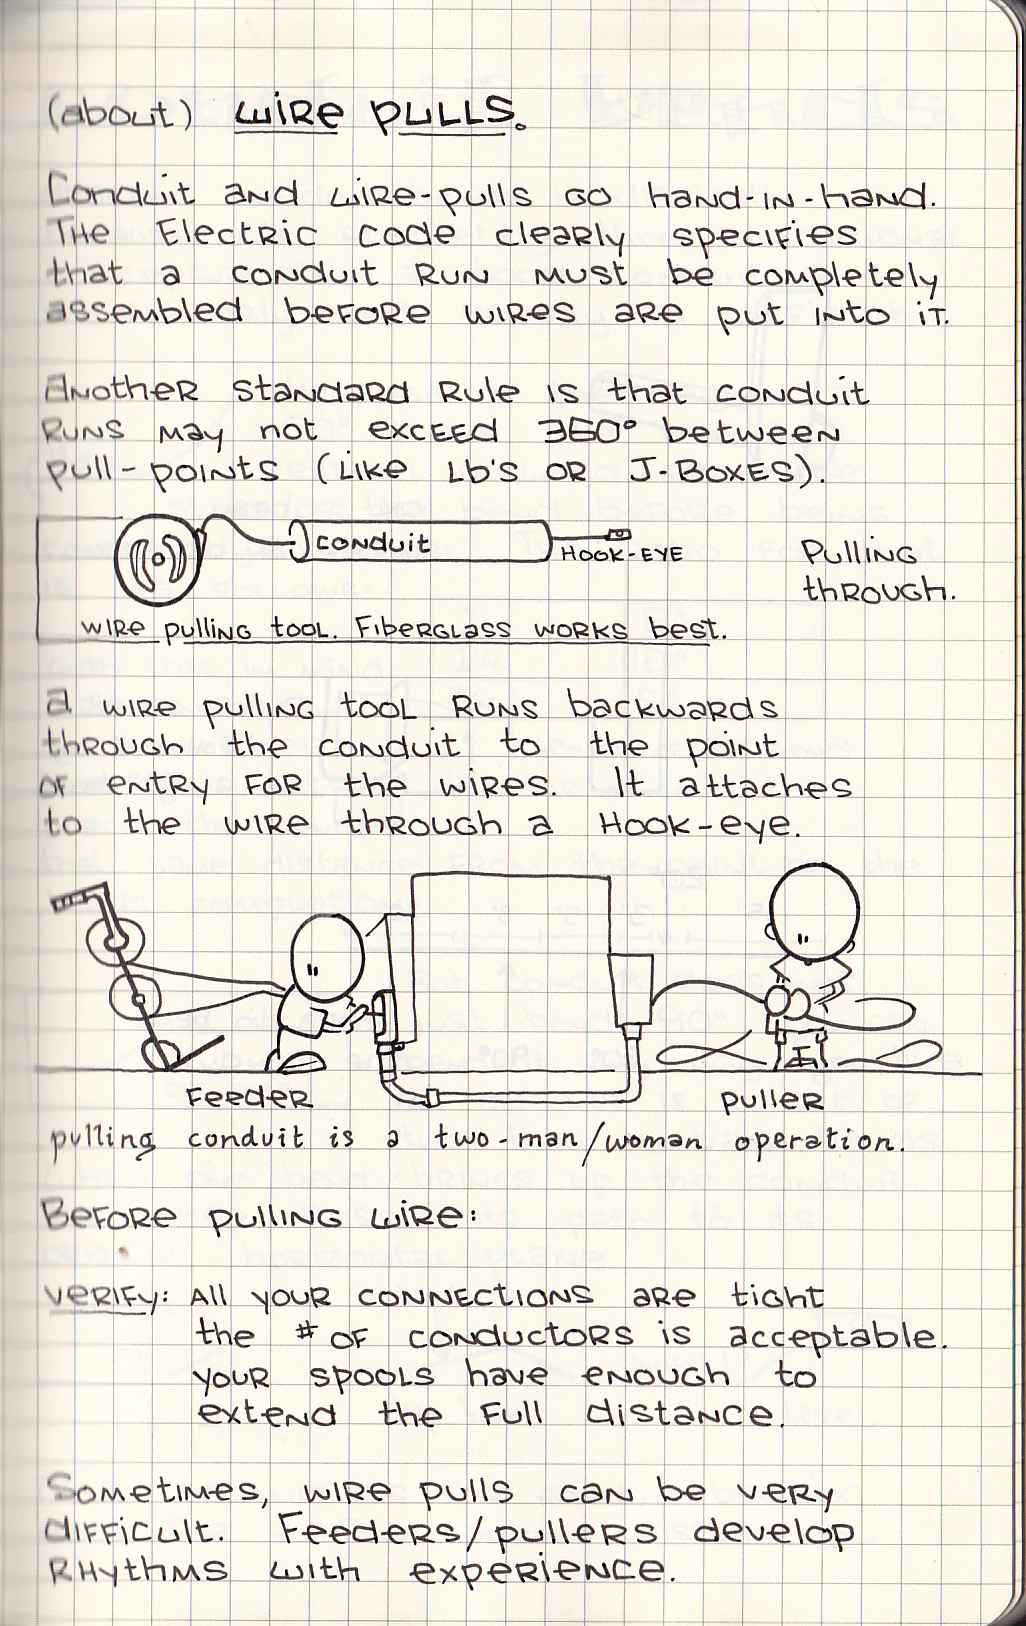 (about) WIRE PULLS.
Conduit and wire-pulls go hand-in-hand.
The Electric code clearly specifies
that a conduit run must be completely
assembled before wires are put into it.
Another standard rule is that conduit
runs may not exceed 360° between
pull-points (like Lb's or J-Boxes).
conduit
Hook-eye
Pulling
through.
wire pulling tool. Fiberglass works best.
a wire pulling tool runs backwards
through the conduit to the point
of entry for the wires. It attaches
to the wire through a Hook-eye.
Feeder
puller
pulling conduit is a two-man/woman operation.
Before pulling wire:
verify: All your connections are tight
the # of conductors is acceptable.
your spools have enough to
extend the full distance.
Sometimes, wire pulls can be very
difficult. Feeders/pullers develop
Rhythms with experience.